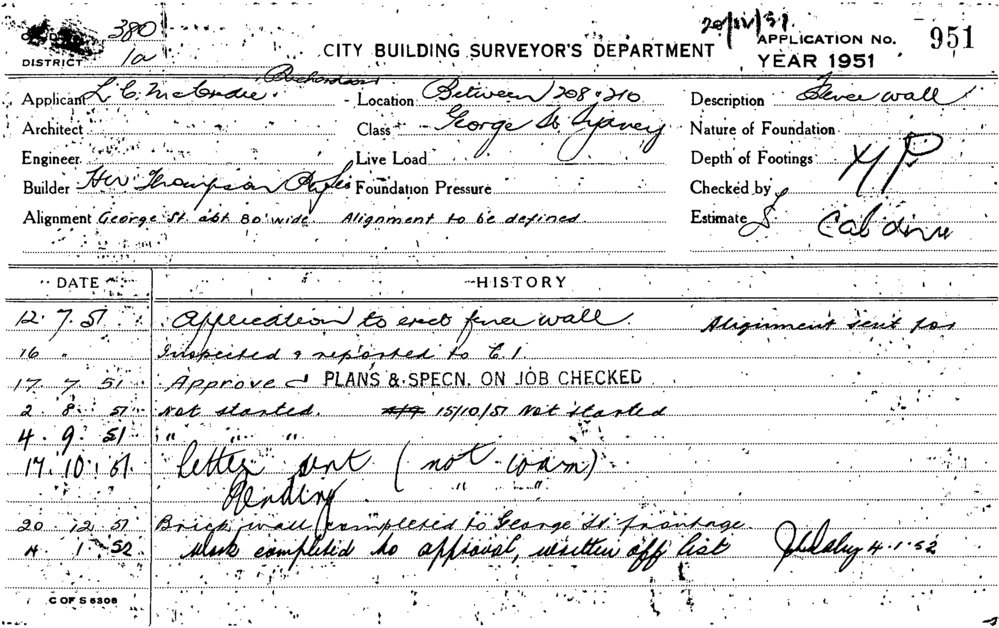 380
1a
DISTRICT
CITY BUILDING SURVEYOR'S DEPARTMENT
APPLICATION No. 951
YEAR 1951
Applicant L.C.
Location Between 208 & 210
Description Fence wall
Architect
Class George St Sydney
Nature of Foundation
Engineer
Live Load
Depth of Footings
Builder HW Thompson
Foundation Pressure
Checked by
Alignment George St. abt 80' wide Alignment to be defined
Estimate £
DATE HISTORY
12. 7. 51 Application to erect fence wall. Alignment sent for
16 " Inspected & reported to C.I.
17. 7. 51 Approved PLANS & SPECN. ON JOB CHECKED
2. 8. 51 Not started. 15/10/51 Not started
4. 9. 51 " " "
17. 10. 51 letter sent (not com)
Pending " "
20 12 51 Brick wall completed to George St. frontage
4. 1. 52 Work completed to approval, written off list 4.1.52
C OF S 6306